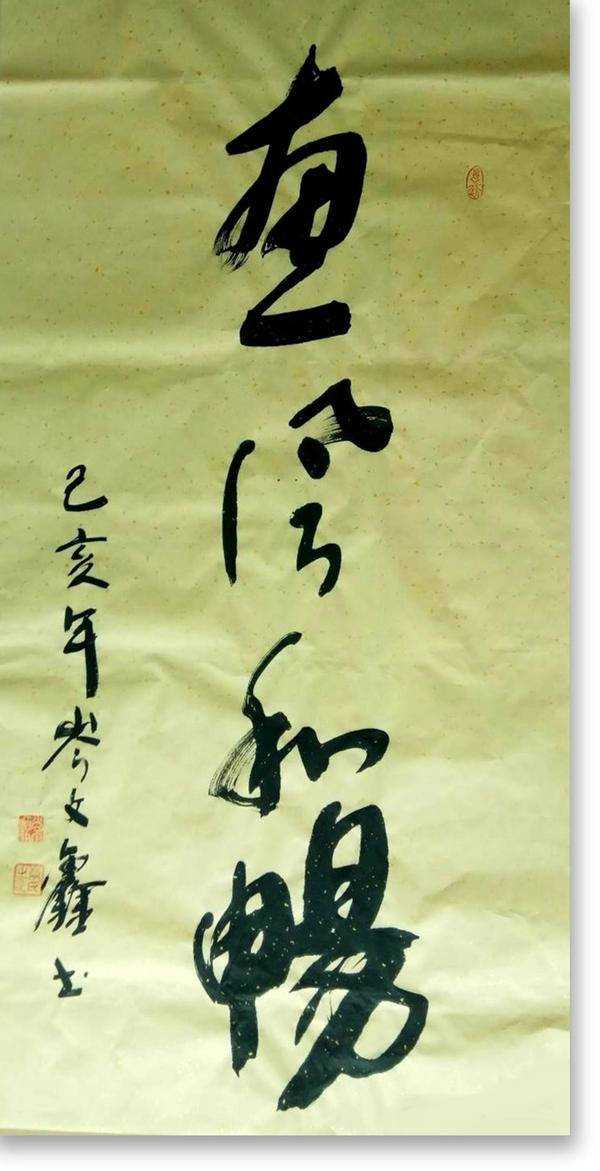 惠风和畅
己亥年岑文鑫书